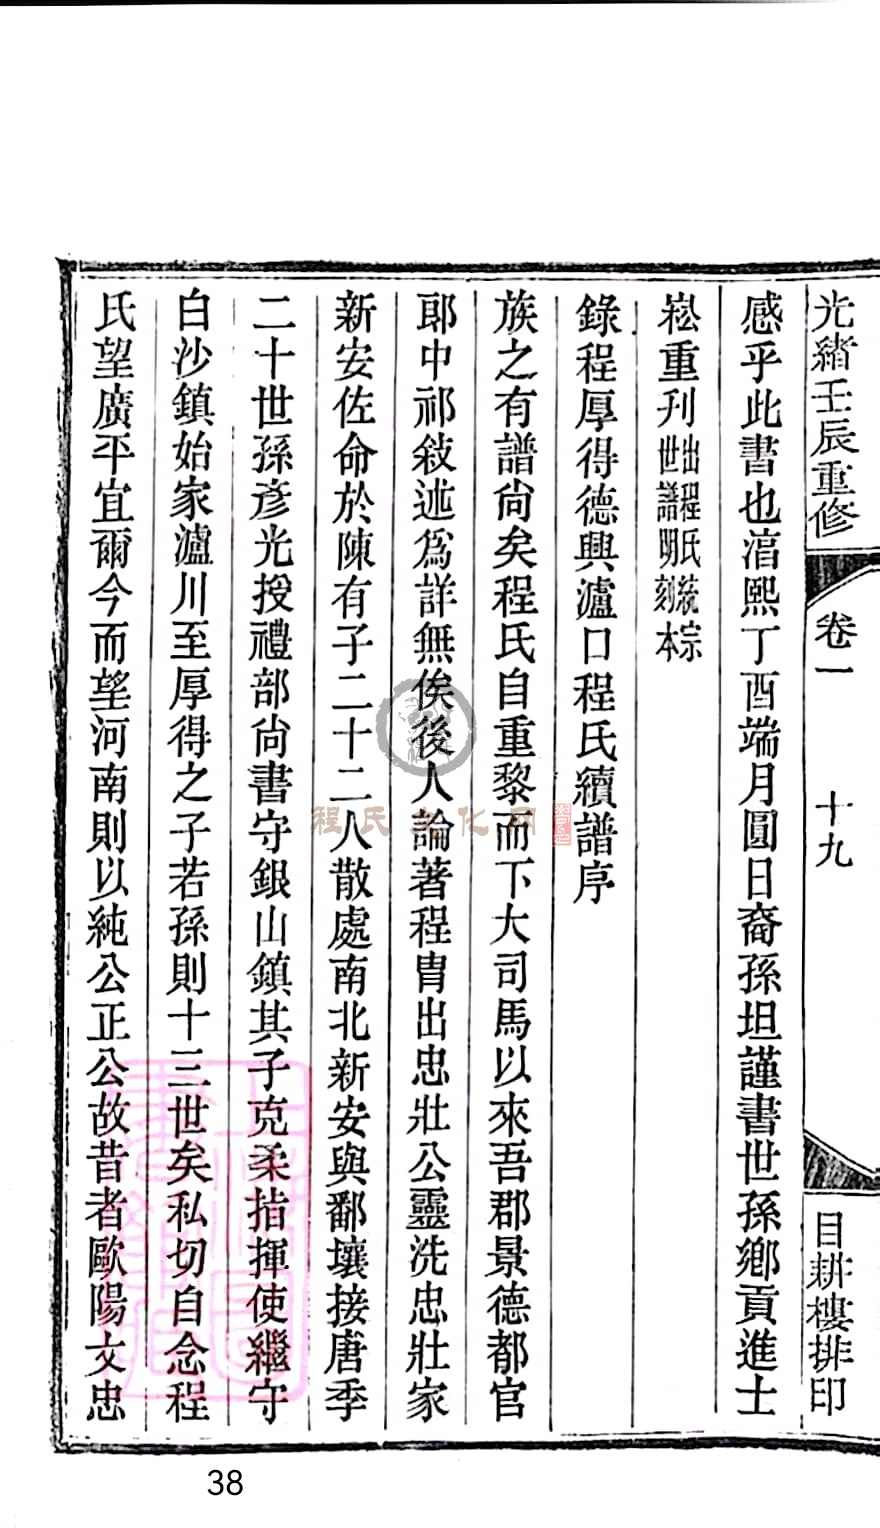 光緒壬辰重修 卷一 十九 目耕樓排印
感乎此書也淯熙丁酉端月圓日裔孫坦謹書世孫鄉貢進士
崧重刋出程氏統宗世譜明刻本
錄程厚得德興瀘口程氏續譜序
族之有譜尙矣程氏自重黎而下大司馬以來吾郡景德都官
郎中祁敍述爲詳無俟後人論著程冑出忠壯公靈洗忠壯家
新安佐命於陳有子二十二人散處南北新安與鄱壤接唐季
二十世孫彥光授禮部尙書守銀山鎮其子克柔指揮使繼守
白沙鎮始家瀘川至厚得之子若孫則十三世矣私切自念程
氏望廣平宜爾今而望河南則以純公正公故昔者歐陽文忠
程氏文化网
38